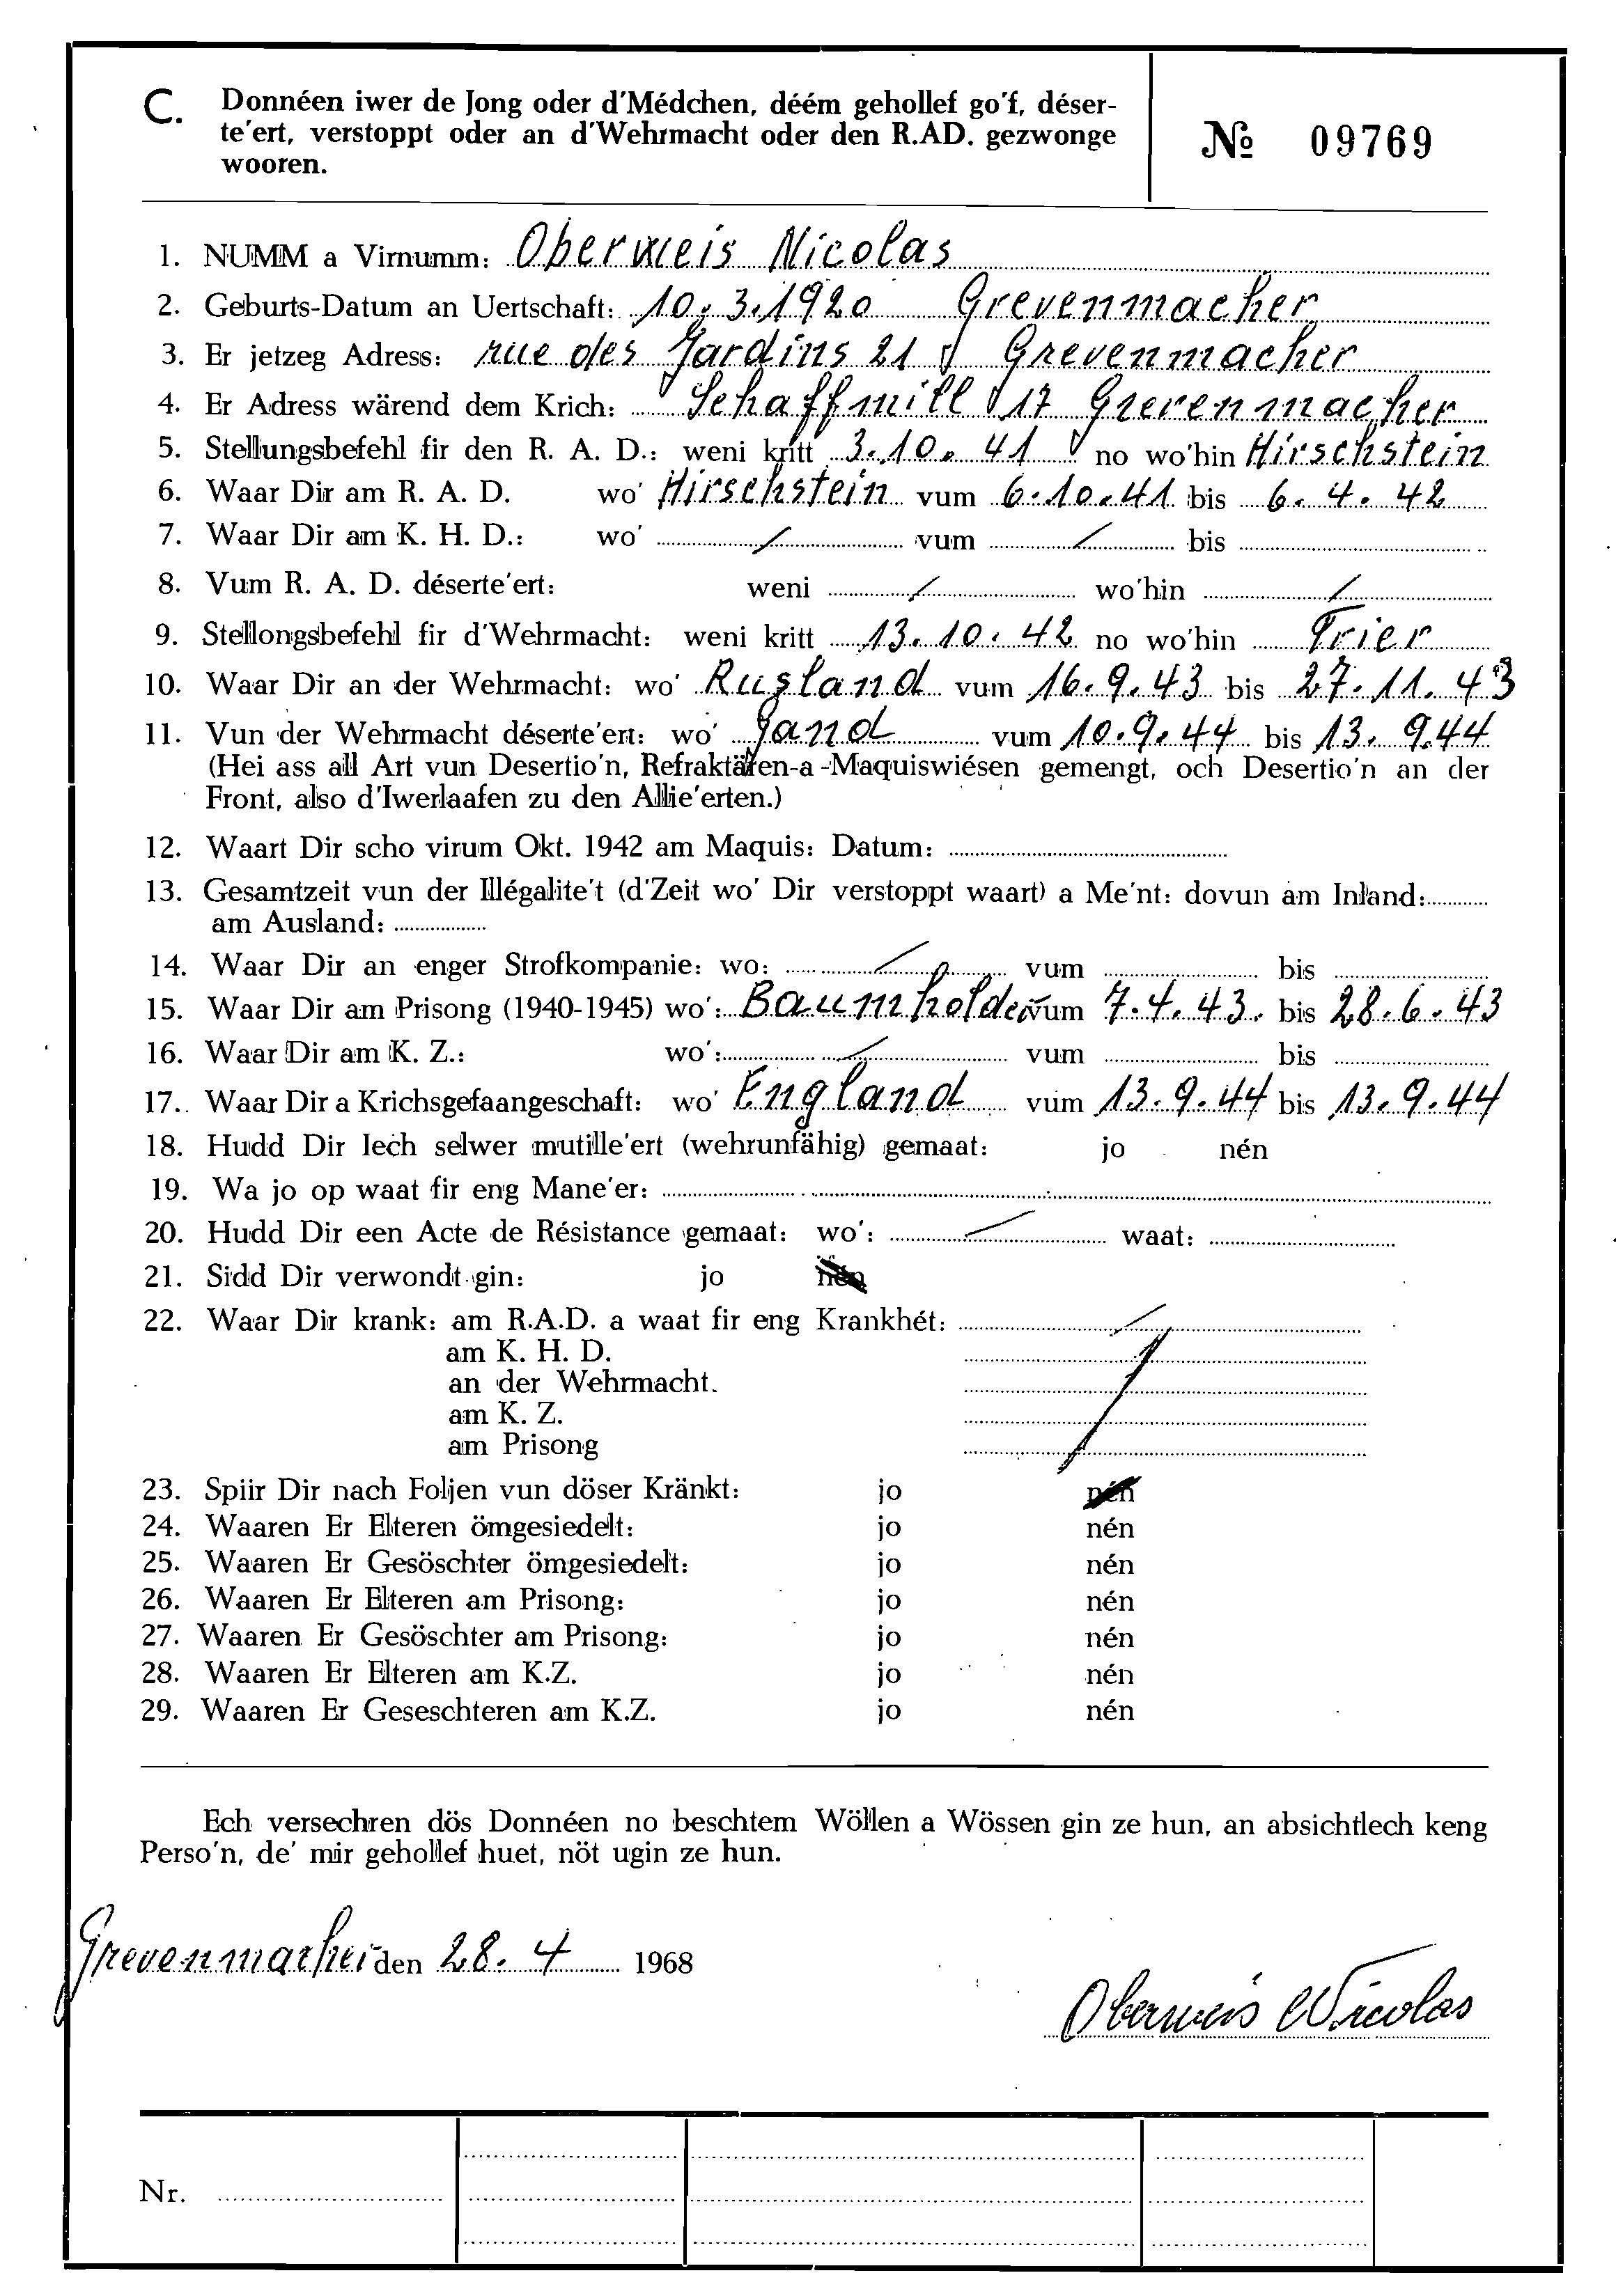 C. Donnéen iwer de Jong oder d'Médchen, déém gehollef go'f, déser-
te'ert, verstoppt oder an d'Wehrmacht oder den R.AD. gezwonge
wooren.
№ 09769
1. NUMM a Virnumm: Oberweis Nicolas
2. Geburts-Datum an Uertschaft: 10.3.1920 Grevenmacher
3. Er jetzeg Adress: rue des Jardins 21 Grevenmacher
4. Er Adress wärend dem Krich: Schaffmill 17 Grevenmacher
5. Stellungsbefehl fir den R. A. D.: weni kritt 3.10.41 no wo'hin Hirschstein
6. Waar Dir am R. A. D. wo' Hirschstein vum 6.10.41 bis 6.4.42
7. Waar Dir am K. H. D.: wo' / vum / bis
8. Vum R. A. D. déserte'ert: weni / wo'hin /
9. Stellongsbefehl fir d'Wehrmacht: weni kritt 13.10.42 no wo'hin Trier
10. Waar Dir an der Wehrmacht: wo' Rusland vum 16.9.43 bis 27.11.43
11. Vun der Wehrmacht déserte'ert: wo' Gand vum 10.9.44 bis 13.9.44
(Hei ass all Art vun Desertio'n, Refraktären-a-Maquiswiésen gemengt, och Desertio'n an der
Front, also d'Iwerlaafen zu den Allie'erten.)
12. Waart Dir scho virum Okt. 1942 am Maquis: Datum:
13. Gesamtzeit vun der Illégalite't (d'Zeit wo' Dir verstoppt waart) a Me'nt: dovun am Inland:
am Ausland:
14. Waar Dir an enger Strofkompanie: wo: / vum bis
15. Waar Dir am Prisong (1940-1945) wo': Baumholder vum 7.4.43. bis 28.6.43
16. Waar Dir am K. Z.: wo': / vum bis
17. Waar Dir a Krichsgefaangeschaft: wo' England vum 13.9.44 bis 13.9.44
18. Hudd Dir Iech selwer mutille'ert (wehrunfähig) gemaat: jo nén
19. Wa jo op waat fir eng Mane'er:
20. Hudd Dir een Acte de Résistance gemaat: wo': / waat:
21. Sidd Dir verwondt gin: jo nén
22. Waar Dir krank: am R.A.D. a waat fir eng Krankhét: /
am K. H. D.
an der Wehrmacht.
am K. Z.
am Prisong
23. Spiir Dir nach Foljen vun döser Kränkt: jo nén
24. Waaren Er Elteren ömgesiedelt: jo nén
25. Waaren Er Gesöschter ömgesiedelt: jo nén
26. Waaren Er Elteren am Prisong: jo nén
27. Waaren Er Gesöschter am Prisong: jo nén
28. Waaren Er Elteren am K.Z. jo nén
29. Waaren Er Geseschteren am K.Z. jo nén
Ech versechren dös Donnéen no beschtem Wöllen a Wössen gin ze hun, an absichtlech keng
Perso'n, de' mir gehollef huet, nöt ugin ze hun.
Grevenmacher den 28.4 1968
Oberweis Nicolas
Nr.